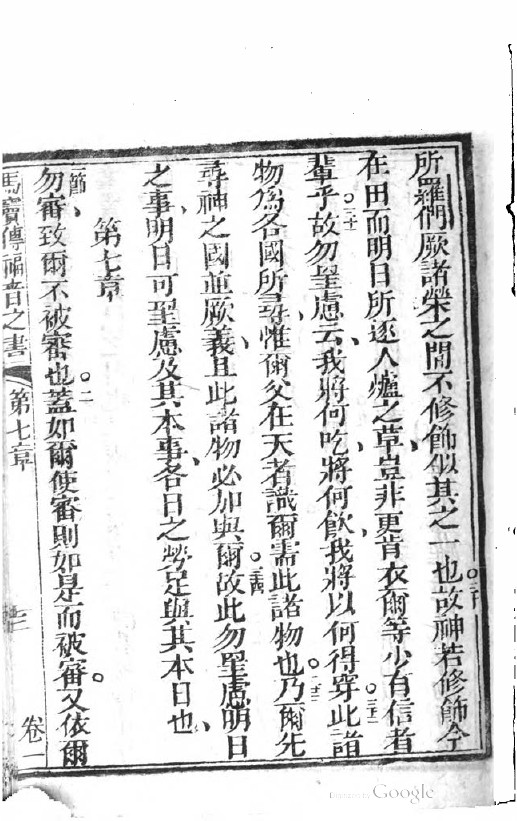 所羅們厥諸榮之間不修飾似其之一也。三十故神若修飾今
在田而明日所逐入爐之草豈非更肯衣爾等少有信者
輩乎。三十一故勿罣慮云我將何吃將何飲我將以何得穿此諸
物爲各國所尋惟爾父在天者識爾需此諸物也。乃爾先
尋神之國並厥義且此諸物必加與爾。三十四故此勿罣慮明日
之事明日可罣慮及其本事各日之勞足與其本日也
第七章
節勿審致爾不被審也。二蓋如爾使審則如是而被審。又依爾
馬竇傳福音之書 第七章 卷一
Digitized by Google